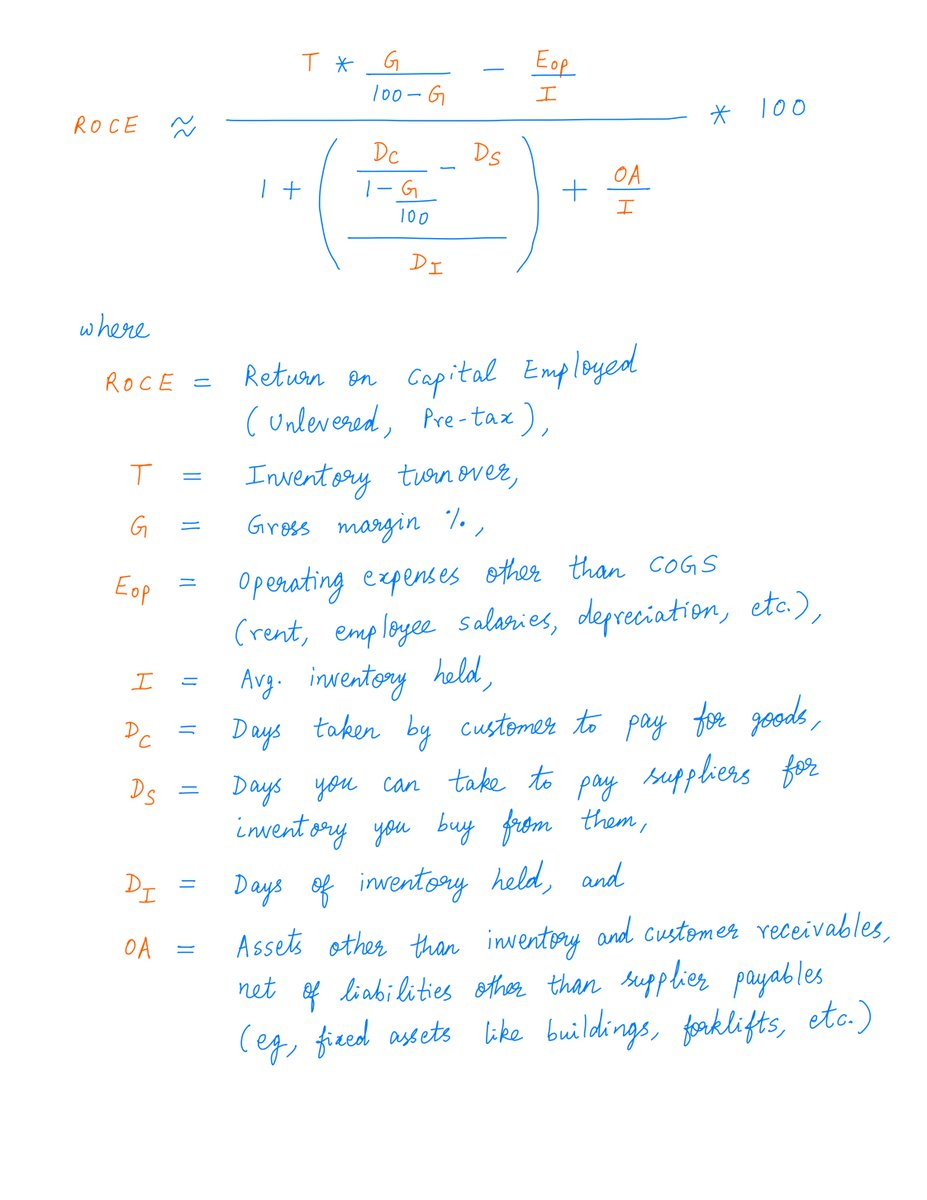 ROCE ≈ (T * G/(100 - G) - Eop/I) / (1 + ((DC/(1 - G/100) - DS) / DI) + OA/I) * 100
where
ROCE = Return on Capital Employed
(Unlevered, Pre-tax),
T = Inventory turnover,
G = Gross margin %,
Eop = Operating expenses other than COGS
(rent, employee salaries, depreciation, etc.),
I = Avg. inventory held,
DC = Days taken by customer to pay for goods,
DS = Days you can take to pay suppliers for
inventory you buy from them,
DI = Days of inventory held, and
OA = Assets other than inventory and customer receivables,
net of liabilities other than supplier payables
(eg, fixed assets like buildings, forklifts, etc.)